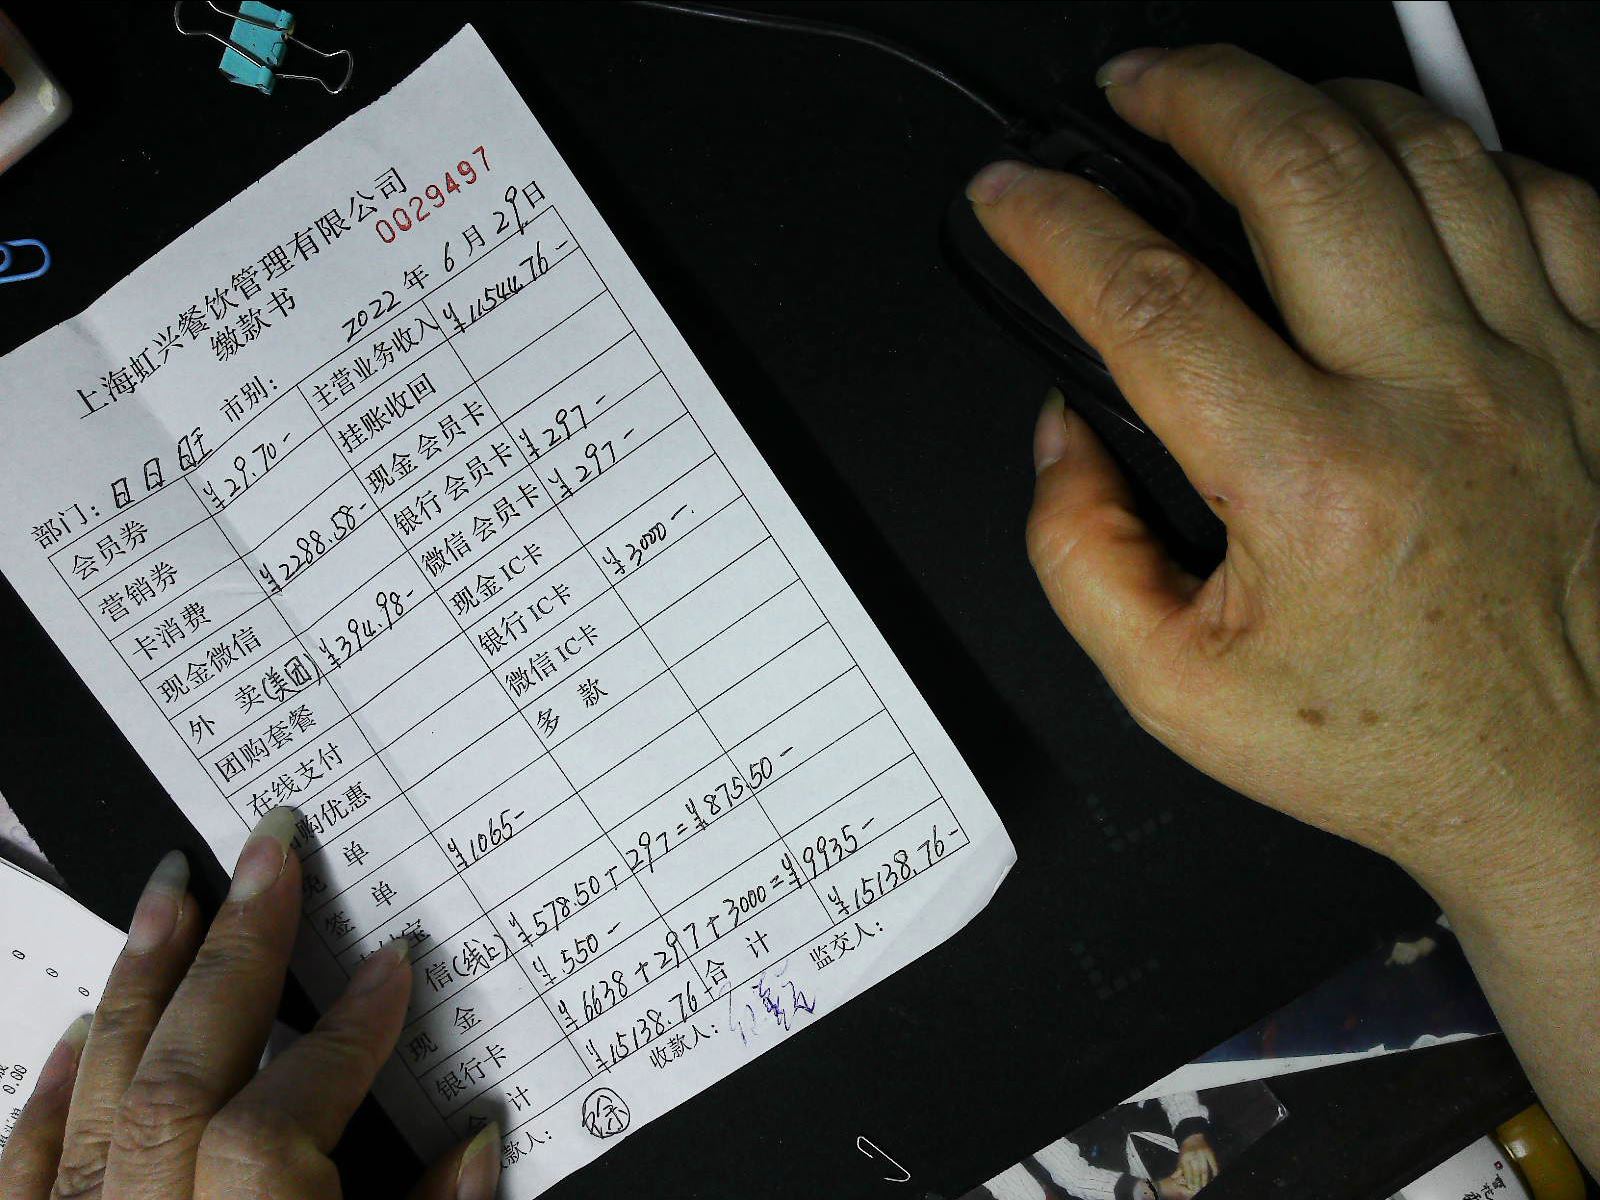 上海虹兴餐饮管理有限公司
0029497
缴款书
2022年 6月 29日
部门：日日旺 市别：
会员券 ¥29.70- 主营业务收入 ¥11544.76-
营销券 挂账收回
卡消费 ¥2288.58- 现金会员卡
现金微信 银行会员卡 ¥297-
外 卖(美团) ¥394.98- 微信会员卡 ¥297-
团购套餐 现金IC卡
在线支付 银行IC卡 ¥3000-
购优惠 微信IC卡
单 多 款
签 单 ¥1065-
宝
信(线上) ¥578.50+297=¥875.50-
现 金 ¥550-
银行卡 ¥6638+297+3000=¥9935-
合 计 ¥15138.76- 合 计 ¥15138.76-
款人： 徐 收款人： 监交人：
0
0
0
0.00